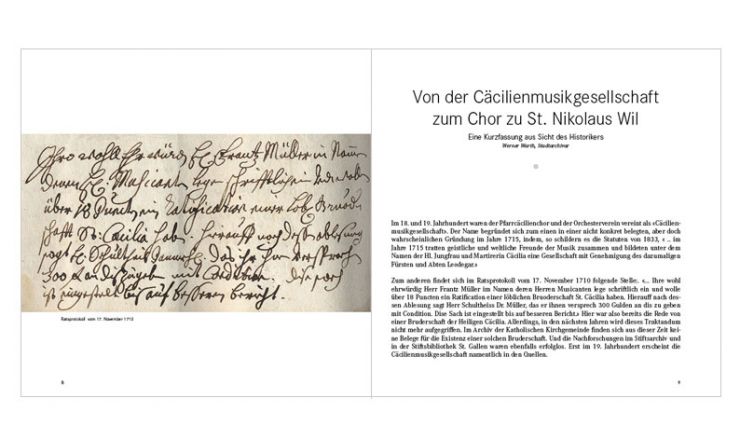 Ihro wohl Ehrwürd H. Frantz Müller in Namen
deren H. Musicanten lege schrifftlich ein wolle
über 18 Puncten ein Ratification einer Lob. Bruod-
schafft St: Cæcilia hab. hierauff nach dess ablesung
sagt H. Schultheiß Müller. das er ihnen versprech
300 an dis zu geben mit Condition. dise sach
ist eingestelt bis auf besseren bericht.
Ratsprotokoll vom 17. November 1710
8
Von der Cäcilienmusikgesellschaft
zum Chor zu St. Nikolaus Wil
Eine Kurzfassung aus Sicht des Historikers
Werner Warth, Stadtarchivar
Im 18. und 19. Jahrhundert waren der Pfarrcäcilienchor und der Orchesterverein vereint als «Cäcilien-
musikgesellschaft». Der Name begründet sich zum einen in einer nicht konkret belegten, aber doch
wahrscheinlichen Gründung im Jahre 1715, indem, so schildern es die Statuten von 1833, « .. im
Jahre 1715 tratten geistliche und weltliche Freunde der Musik zusammen und bildeten unter dem
Namen der Hl. Jungfrau und Martirerin Cäcilia eine Gesellschaft mit Genehmigung des dazumaligen
Fürsten und Abten Leodegar.»
Zum anderen findet sich im Ratsprotokoll vom 17. November 1710 folgende Stelle: «.. Ihre wohl
ehrwürdig Herr Frantz Müller im Namen deren Herren Musicanten lege schriftlich ein und wolle
über 18 Puncten ein Ratification einer löblichen Bruoderschaft St. Cäcilia haben. Hierauff nach des-
sen Ablesung sagt Herr Schultheiss Dr. Müller, das er ihnen versprech 300 Gulden an dis zu geben
mit Condition. Dise Sach ist eingestellt bis auf besseren Bericht.» Hier war also bereits die Rede von
einer Bruderschaft der Heiligen Cäcilia. Allerdings, in den nächsten Jahren wird dieses Traktandum
nicht mehr aufgegriffen. Im Archiv der Katholischen Kirchgemeinde finden sich aus dieser Zeit kei-
ne Belege für die Existenz einer solchen Bruderschaft. Und die Nachforschungen im Stiftsarchiv und
in der Stiftsbibliothek St. Gallen waren ebenfalls erfolglos. Erst im 19. Jahrhundert erscheint die
Cäcilienmusikgesellschaft namentlich in den Quellen.
9